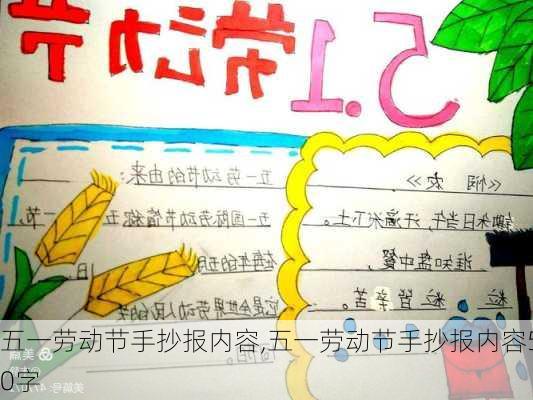 5.1
劳动节
《悯农》
锄禾日当午，汗滴禾下土。
谁知盘中餐，
粒粒皆辛苦。
五一劳动节的由来：
国际劳动节简称五一节，
在每年的五月
日
它是全世界劳动人民的
五一劳动节手抄报内容,五一劳动节手抄报内容5
0字
美篇